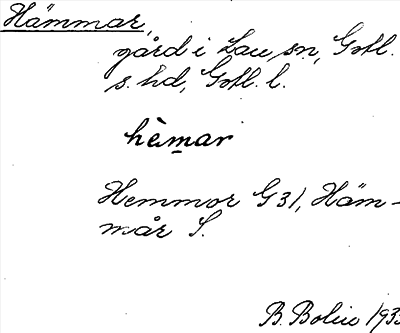 Hämmar,
gård i Lau sn, Gotl.
s. hd, Gotl. l.
hèmar
Hemmor G31, Häm-
mår S.
B. Bolin 1933